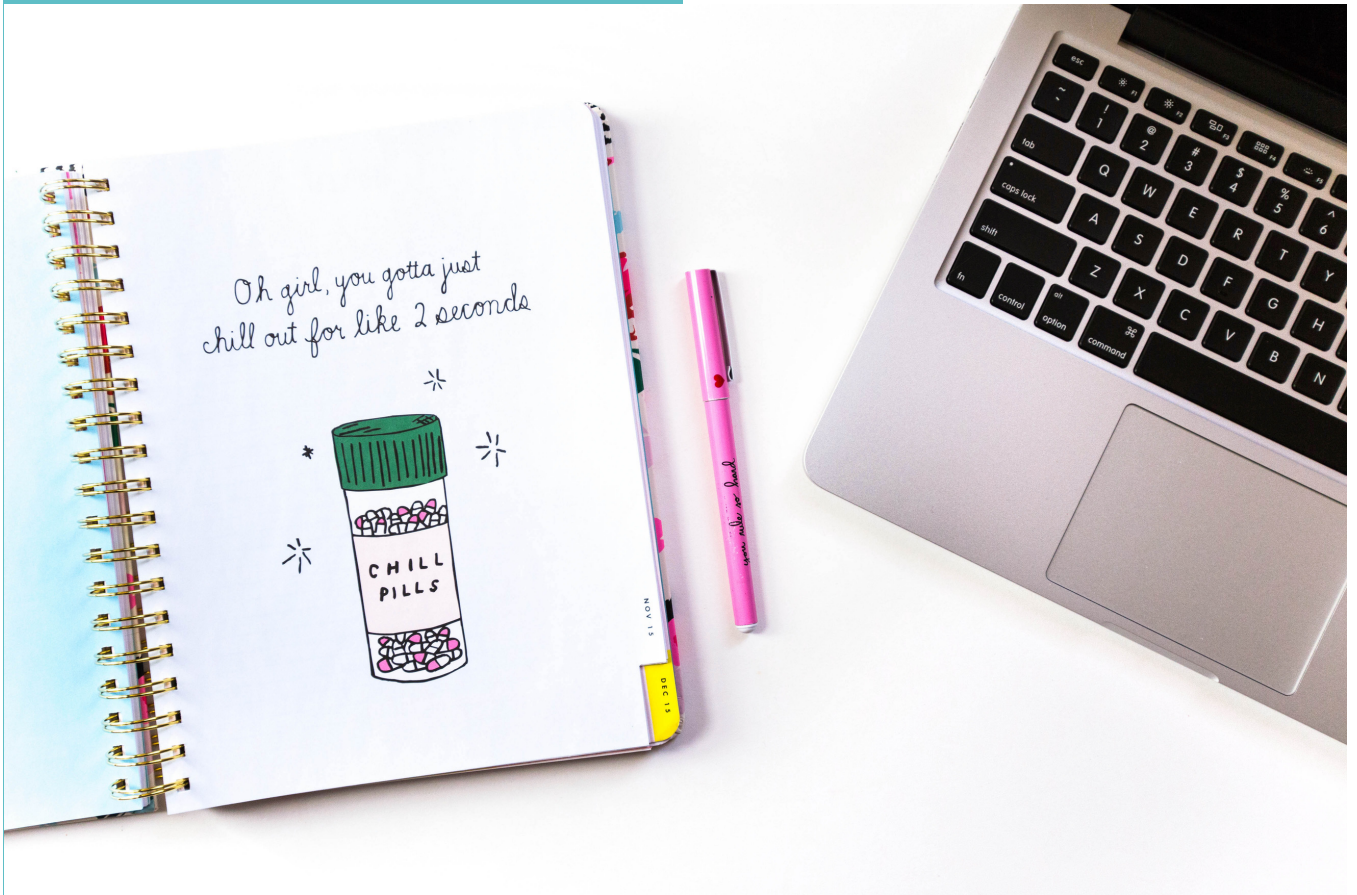 Oh girl, you gotta just
chill out for like 2 seconds
CHILL
PILLS
NOV 15
DEC 15
you rule so hard
esc
F1
F2
F3
F4
F5
~
`
!
1
@
2
#
3
$
4
%
5
^
6
tab
Q
W
E
R
T
Y
caps lock
A
S
D
F
G
H
shift
Z
X
C
V
B
N
fn
control
alt
option
⌘
command